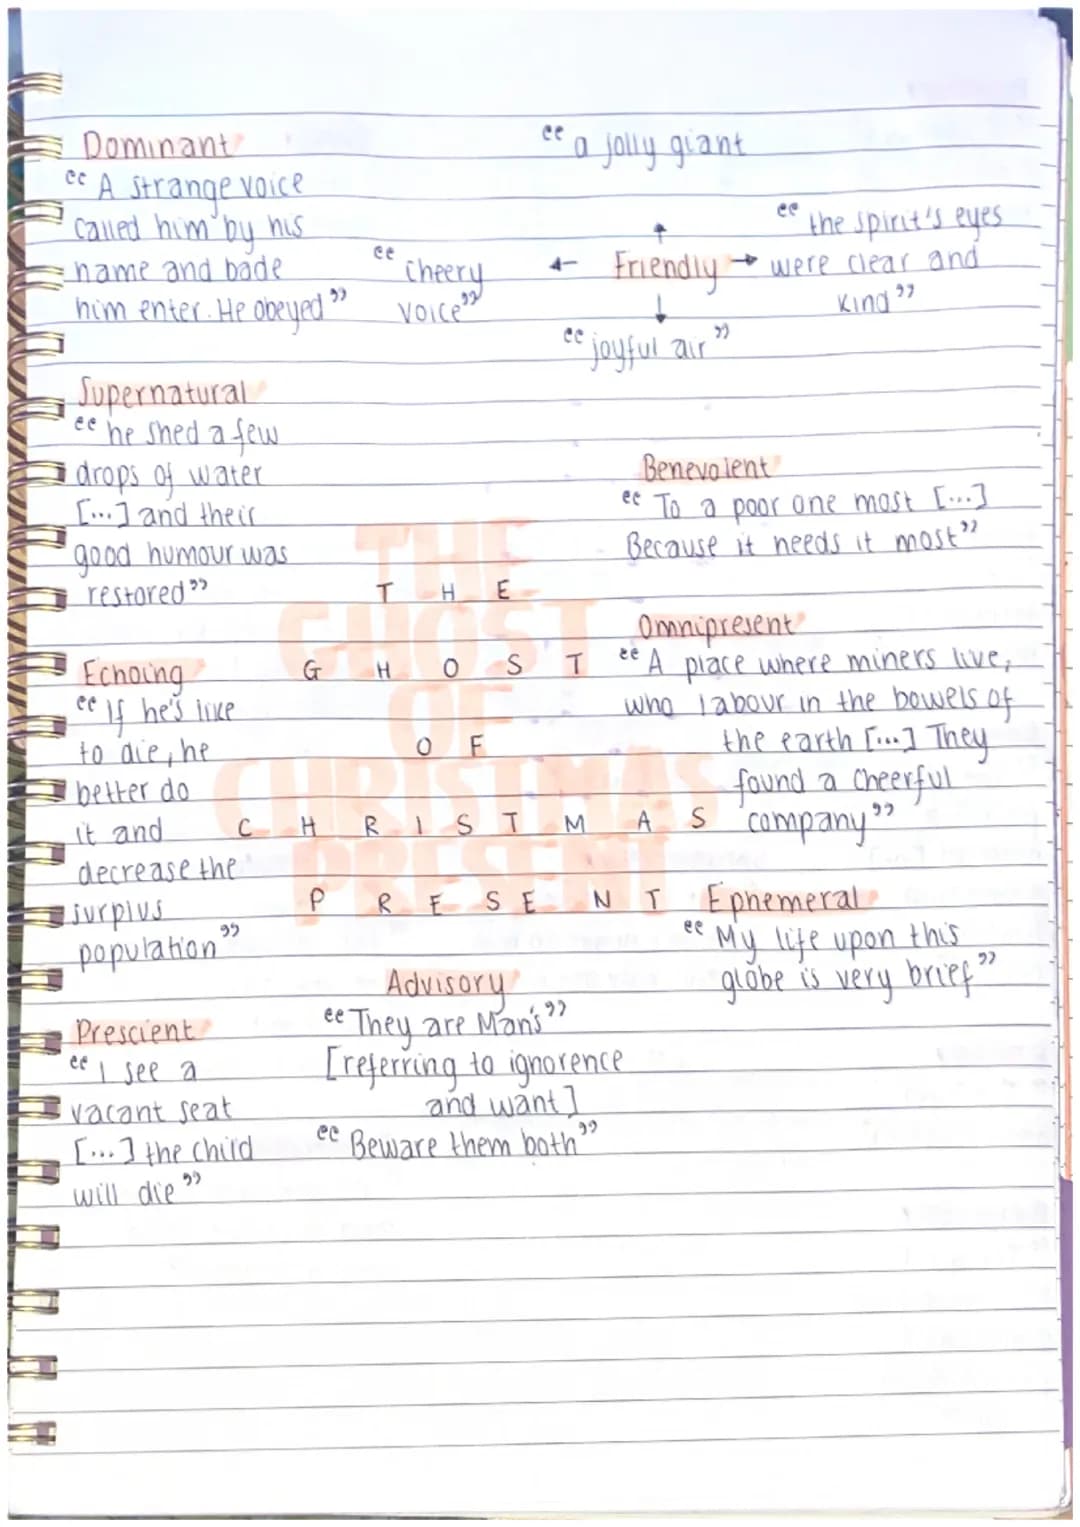 Dominant
“A strange voice
called him by his
name and bade
him enter. He obeyed”
“a jolly giant
“cheery
voice”
Friendly
“the spirit's eyes
were clear and
kind”
“joyful air”
Supernatural
“he shed a few
drops of water
[...] and their
good humour was
restored”
Benevolent
“To a poor one most [...]
Because it needs it most”
THE
GHOST
OF
CHRISTMAS
PRESENT
T H E
G H O S T
O F
C H R I S T M A S
P R E S E N T
Omnipresent
“A place where miners live,
who labour in the bowels of
the earth [...] They
found a cheerful
company”
Echoing
“If he's like
to die, he
better do
it and
decrease the
surplus
population”
Ephemeral
“My life upon this
globe is very brief”
Advisory
“They are Man's”
[referring to ignorence
and want]
“Beware them both”
Prescient
“I see a
vacant seat
[...] the child
will die”